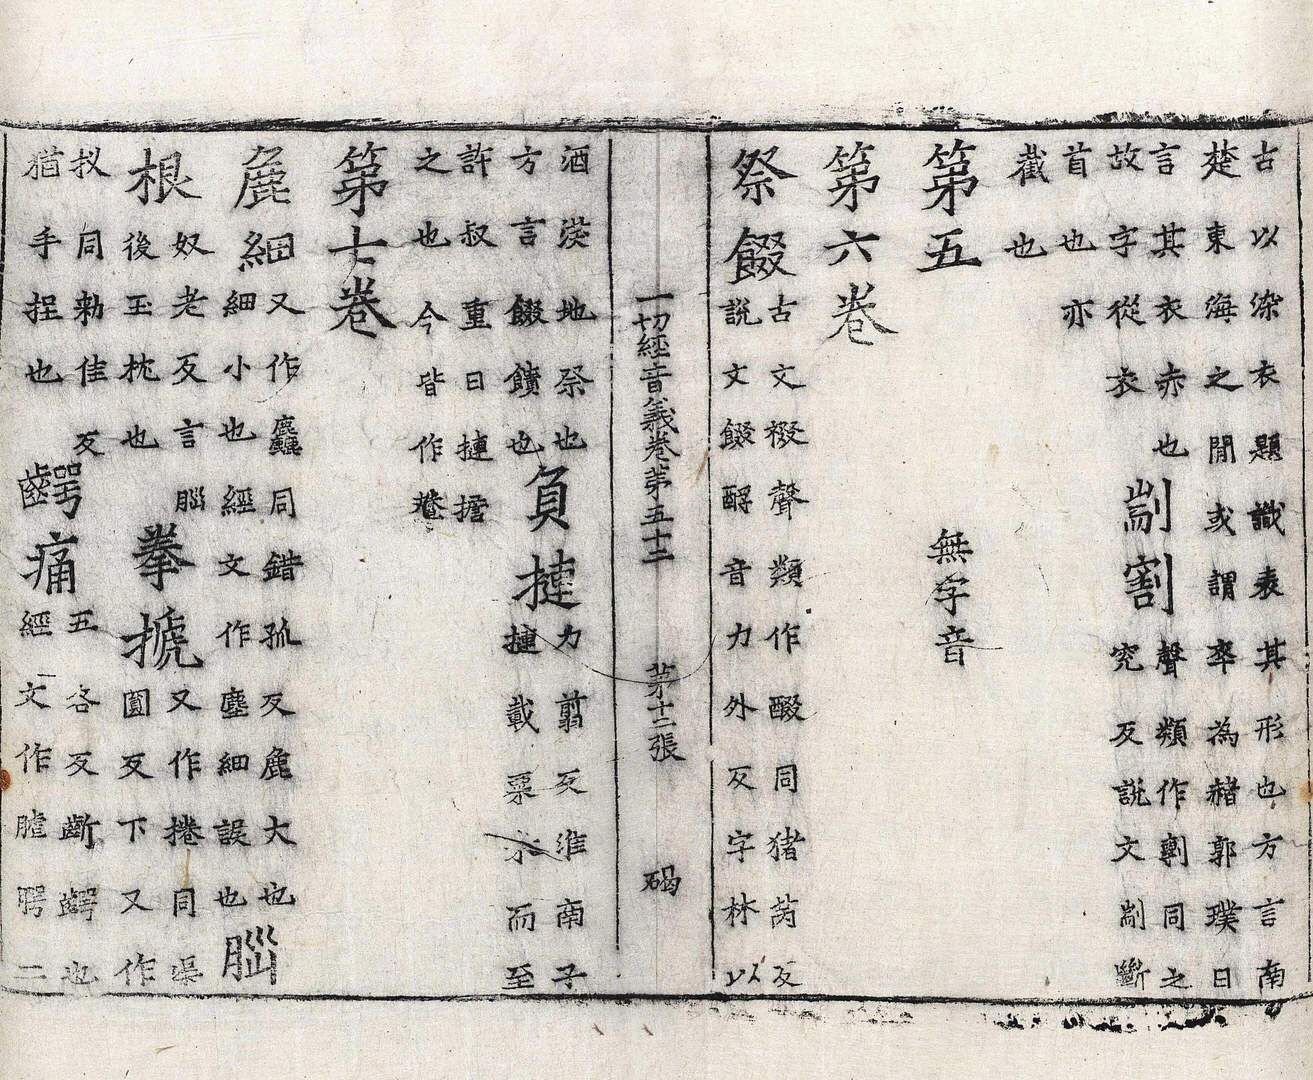 古以染衣題識表其形也方言南
楚東海之間或謂卒為赭郭璞曰
言其衣赤也
故字從衣
剬割
聲類作剸同之
究反說文剬斷
首也亦
截也
第五
無字音
第六卷
祭餟
古文裰聲類作醊同猪芮反
說文餟酹音力外反字林以
酒沃地祭也
方言餟饋也
負揵
力翦反淮南子
揵載粟米而至
許叔重曰揵擔
之也今皆作輦
第七卷
麁細
又作麤同錯孤反麁大也
細細小也經文作塵細誤也
腦
根
奴老反言腦
後玉枕也
拳搋
又作捲同渠
圓反下又作
扠同勅佳反
猶手捏也
齶痛
五各反齗齶也
經文作膖腭二
一切經音義卷第五十二
第十二張
碣